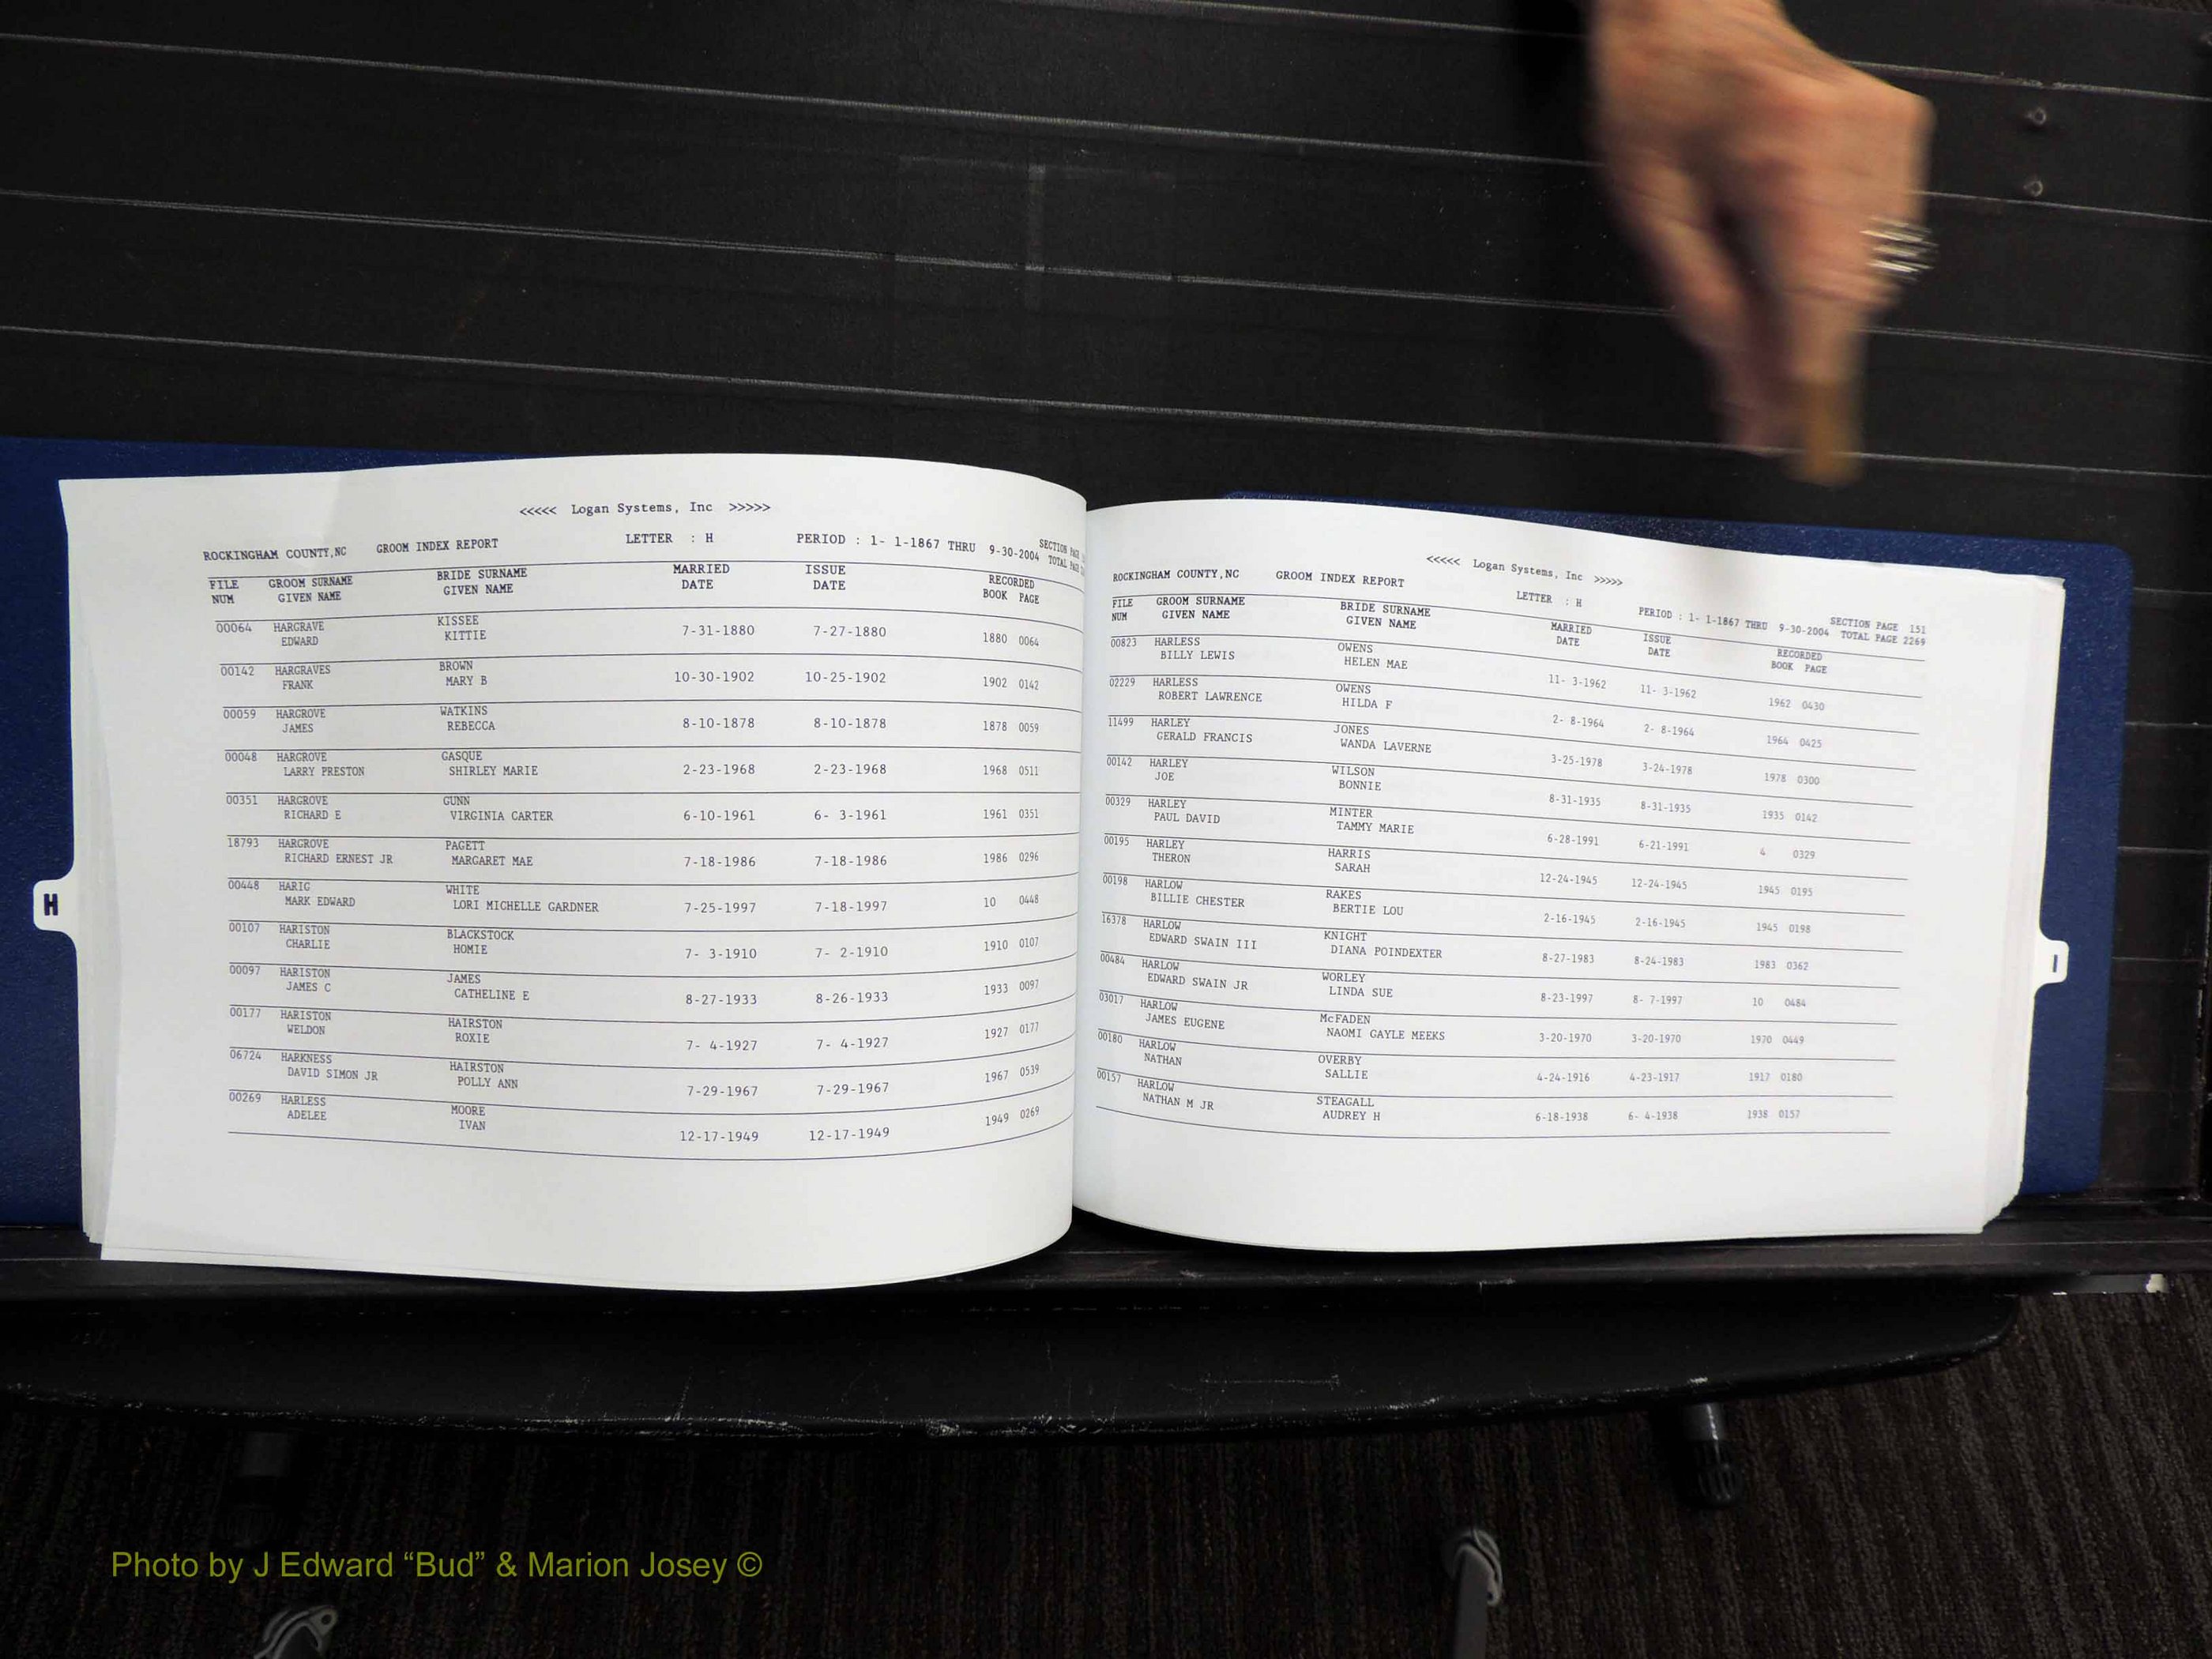 <<<<< Logan Systems, Inc >>>>>
ROCKINGHAM COUNTY,NC GROOM INDEX REPORT LETTER : H PERIOD : 1- 1-1867 THRU 9-30-2004 SECTION PAGE
TOTAL PAGE
FILE GROOM SURNAME BRIDE SURNAME MARRIED ISSUE RECORDED
NUM GIVEN NAME GIVEN NAME DATE DATE BOOK PAGE
00064 HARGRAVE KISSEE 7-31-1880 7-27-1880 1880 0064
EDWARD KITTIE
00142 HARGRAVES BROWN 10-30-1902 10-25-1902 1902 0142
FRANK MARY B
00059 HARGROVE WATKINS 8-10-1878 8-10-1878 1878 0059
JAMES REBECCA
00048 HARGROVE GASQUE 2-23-1968 2-23-1968 1968 0511
LARRY PRESTON SHIRLEY MARIE
00351 HARGROVE GUNN 6-10-1961 6- 3-1961 1961 0351
RICHARD E VIRGINIA CARTER
18793 HARGROVE PAGETT 7-18-1986 7-18-1986 1986 0296
RICHARD ERNEST JR MARGARET MAE
00448 HARIG WHITE 7-25-1997 7-18-1997 10 0448
MARK EDWARD LORI MICHELLE GARDNER
00107 HARISTON BLACKSTOCK 7- 3-1910 7- 2-1910 1910 0107
CHARLIE HOMIE
00097 HARISTON JAMES 8-27-1933 8-26-1933 1933 0097
JAMES C CATHELINE E
00177 HARISTON HAIRSTON 7- 4-1927 7- 4-1927 1927 0177
WELDON ROXIE
06724 HARKNESS HAIRSTON 7-29-1967 7-29-1967 1967 0539
DAVID SIMON JR POLLY ANN
00269 HARLESS MOORE 12-17-1949 12-17-1949 1949 0269
ADELEE IVAN
H
<<<<< Logan Systems, Inc >>>>>
ROCKINGHAM COUNTY,NC GROOM INDEX REPORT LETTER : H PERIOD : 1- 1-1867 THRU 9-30-2004 SECTION PAGE 151
TOTAL PAGE 2269
FILE GROOM SURNAME BRIDE SURNAME MARRIED ISSUE RECORDED
NUM GIVEN NAME GIVEN NAME DATE DATE BOOK PAGE
00823 HARLESS OWENS 11- 3-1962 11- 3-1962 1962 0430
BILLY LEWIS HELEN MAE
02229 HARLESS OWENS 2- 8-1964 2- 8-1964 1964 0425
ROBERT LAWRENCE HILDA F
11499 HARLEY JONES 3-25-1978 3-24-1978 1978 0300
GERALD FRANCIS WANDA LAVERNE
00142 HARLEY WILSON 8-31-1935 8-31-1935 1935 0142
JOE BONNIE
00329 HARLEY MINTER 6-28-1991 6-21-1991 4 0329
PAUL DAVID TAMMY MARIE
00195 HARLEY HARRIS 12-24-1945 12-24-1945 1945 0195
THERON SARAH
00198 HARLOW RAKES 2-16-1945 2-16-1945 1945 0198
BILLIE CHESTER BERTIE LOU
16378 HARLOW KNIGHT 8-27-1983 8-24-1983 1983 0362
EDWARD SWAIN III DIANA POINDEXTER
00484 HARLOW WORLEY 8-23-1997 8- 7-1997 10 0484
EDWARD SWAIN JR LINDA SUE
03017 HARLOW McFADEN 3-20-1970 3-20-1970 1970 0449
JAMES EUGENE NAOMI GAYLE MEEKS
00180 HARLOW OVERBY 4-24-1916 4-23-1917 1917 0180
NATHAN SALLIE
00157 HARLOW STEAGALL 6-18-1938 6- 4-1938 1938 0157
NATHAN M JR AUDREY H
I
Photo by J Edward “Bud” & Marion Josey ©